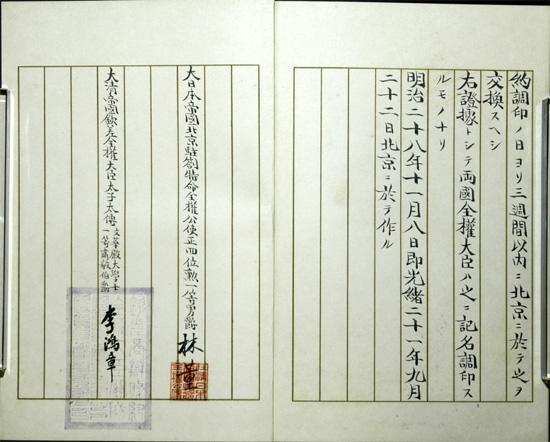 約調印ノ日ヨリ三週間以内ニ北京ニ於テ之ヲ
交換スヘシ
右證據トシテ両國全權大臣ハ之ニ記名調印ス
ルモノナリ
明治二十八年十一月八日即光緒二十一年九月
二十二日北京ニ於テ作ル
大日本帝國北京駐劄特命全權公使正四位勲一等男爵 林董
大清帝國欽差全權大臣太子太傅文華殿大學士一等肅毅伯爵 李鴻章